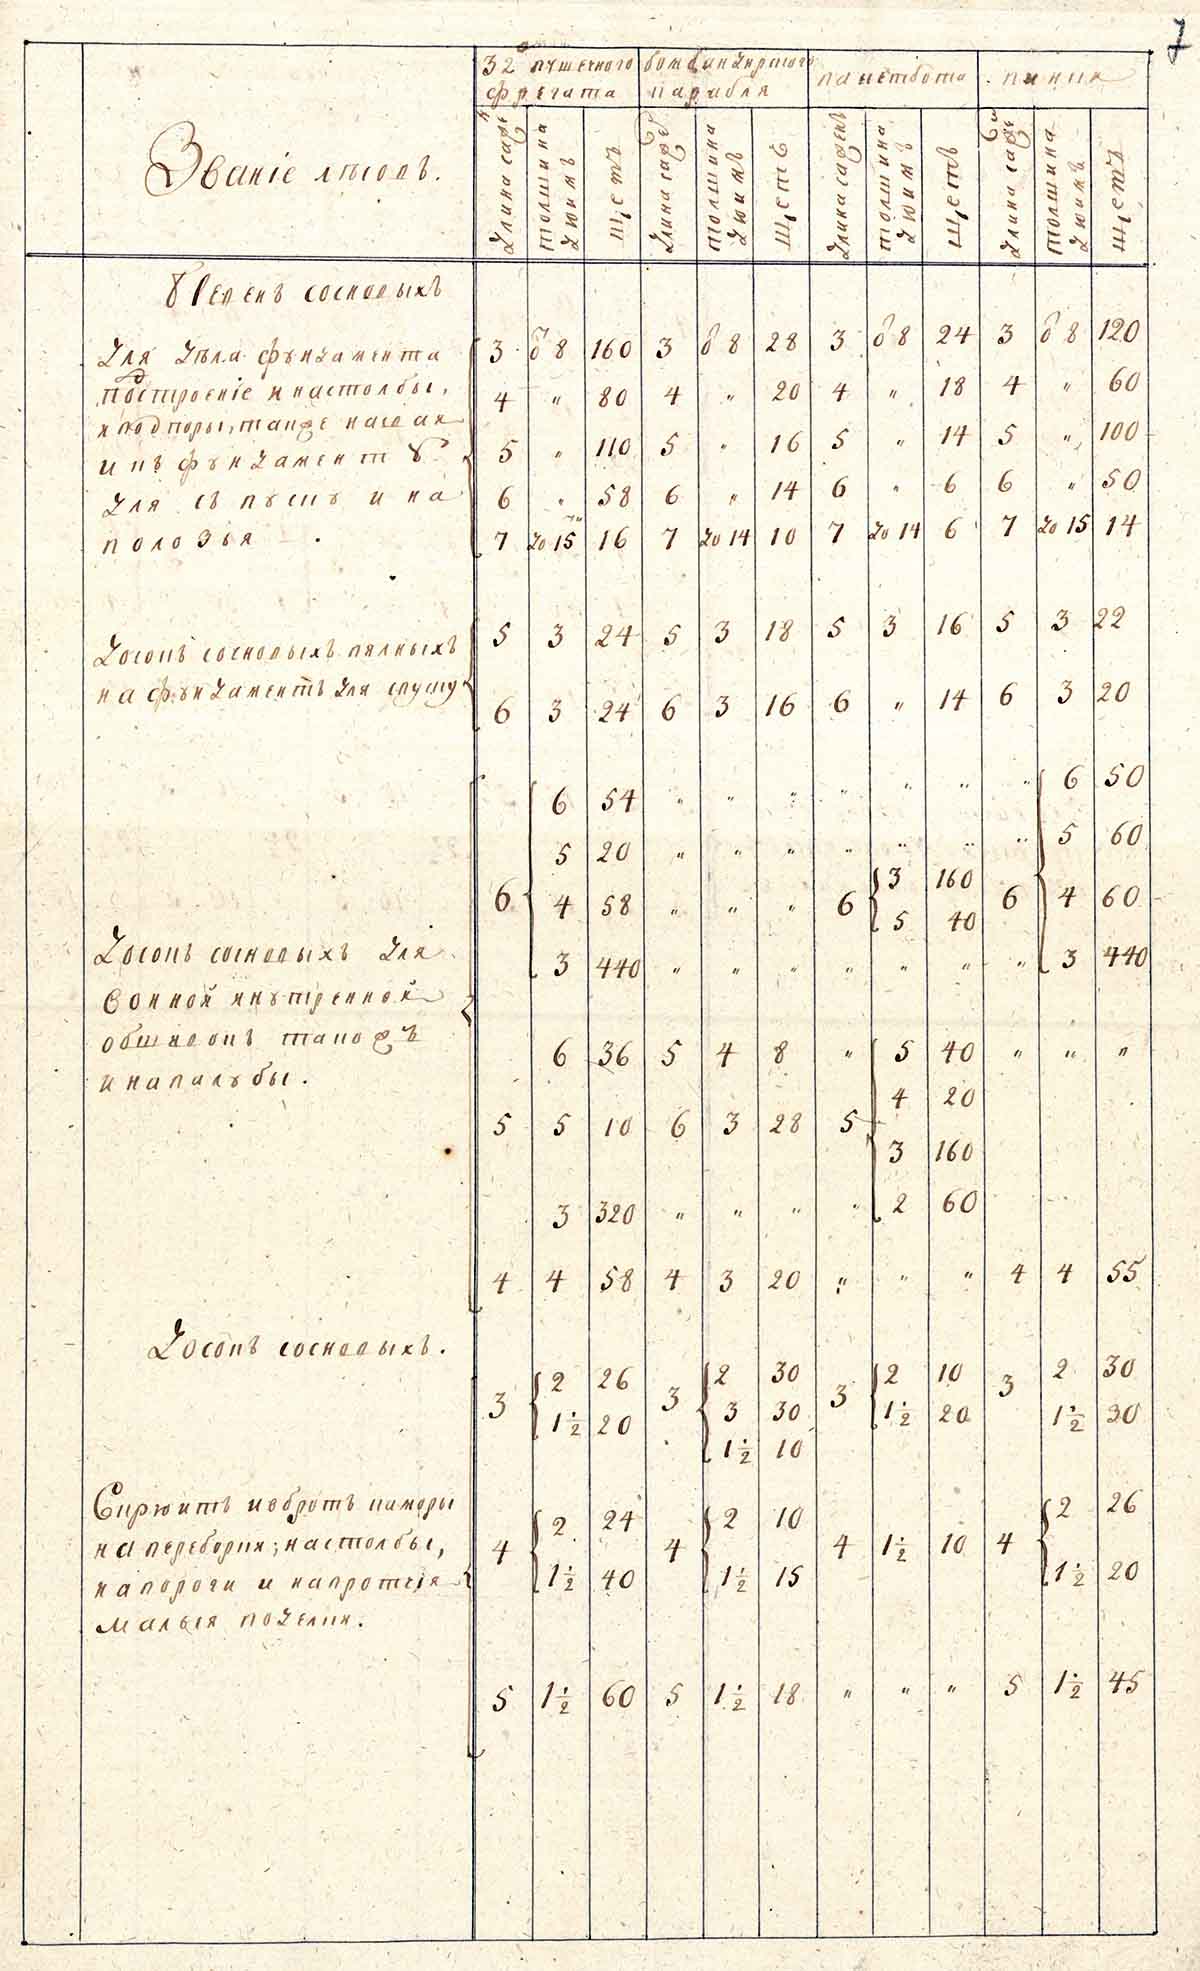 7
32 пушечного фрегата | бомбандирского карабля | пакетбота | пинка
Званіе лѣсовъ. | длина саже | толщина дюимъ | щетъ | длина саже | толщина дюимъ | щетъ | длина саженъ | толщина дюимъ | щетъ | длина саже | толщина дюимъ | щетъ
бревенъ сосновыхъ
для дѣла фундамента | 3 | 8 | 160 | 3 | 8 | 28 | 3 | 8 | 24 | 3 | 8 | 120
построеніе и настолбы, | 4 | " | 80 | 4 | " | 20 | 4 | " | 18 | 4 | " | 60
и подпоры, такъже насваи | 5 | " | 110 | 5 | " | 16 | 5 | " | 14 | 5 | " | 100
и въ фундаментъ
для спуску и на | 6 | " | 58 | 6 | " | 14 | 6 | " | 6 | 6 | " | 50
полозья | 7 | до 15 | 16 | 7 | до 14 | 10 | 7 | до 14 | 6 | 7 | до 15 | 14
досокъ сосновыхъ пилныхъ | 5 | 3 | 24 | 5 | 3 | 18 | 5 | 3 | 16 | 5 | 3 | 22
на фундаментъ для спуску | 6 | 3 | 24 | 6 | 3 | 16 | 6 | " | 14 | 6 | 3 | 20
6 | 54 | " | " | " | " | " | " | " | 6 | 50
5 | 20 | " | " | " | " | " | " | " | 5 | 60
3 | 160
6 | 4 | 58 | " | " | " | 6 | 5 | 40 | 6 | 4 | 60
досокъ сосновыхъ для | 3 | 440 | " | " | " | " | " | " | " | 3 | 440
внутренной
обшивокъ такожъ | 6 | 36 | 5 | 4 | 8 | " | 5 | 40 | " | " | "
и на палубы. | 4 | 20
5 | 5 | 10 | 6 | 3 | 28 | 5 | 3 | 160
3 | 320 | " | " | " | " | 2 | 60
4 | 4 | 58 | 4 | 3 | 20 | " | " | " | 4 | 4 | 55
досокъ сосновыхъ.
3 | 2 | 26 | 3 | 2 | 30 | 3 | 2 | 10 | 3 | 2 | 30
1 1/2 | 20 | 3 | 30 | 1 1/2 | 20 | 1 1/2 | 30
1 1/2 | 10
каморы | 2 | 24 | 2 | 10 | 2 | 26
на переборки; настолбы, | 4 | 4 | 4 | 1 1/2 | 10 | 4
на пороги и напротчія | 1 1/2 | 40 | 1 1/2 | 15 | 1 1/2 | 20
малыя поделки.
5 | 1 1/2 | 60 | 5 | 1 1/2 | 18 | " | " | " | 5 | 1 1/2 | 45